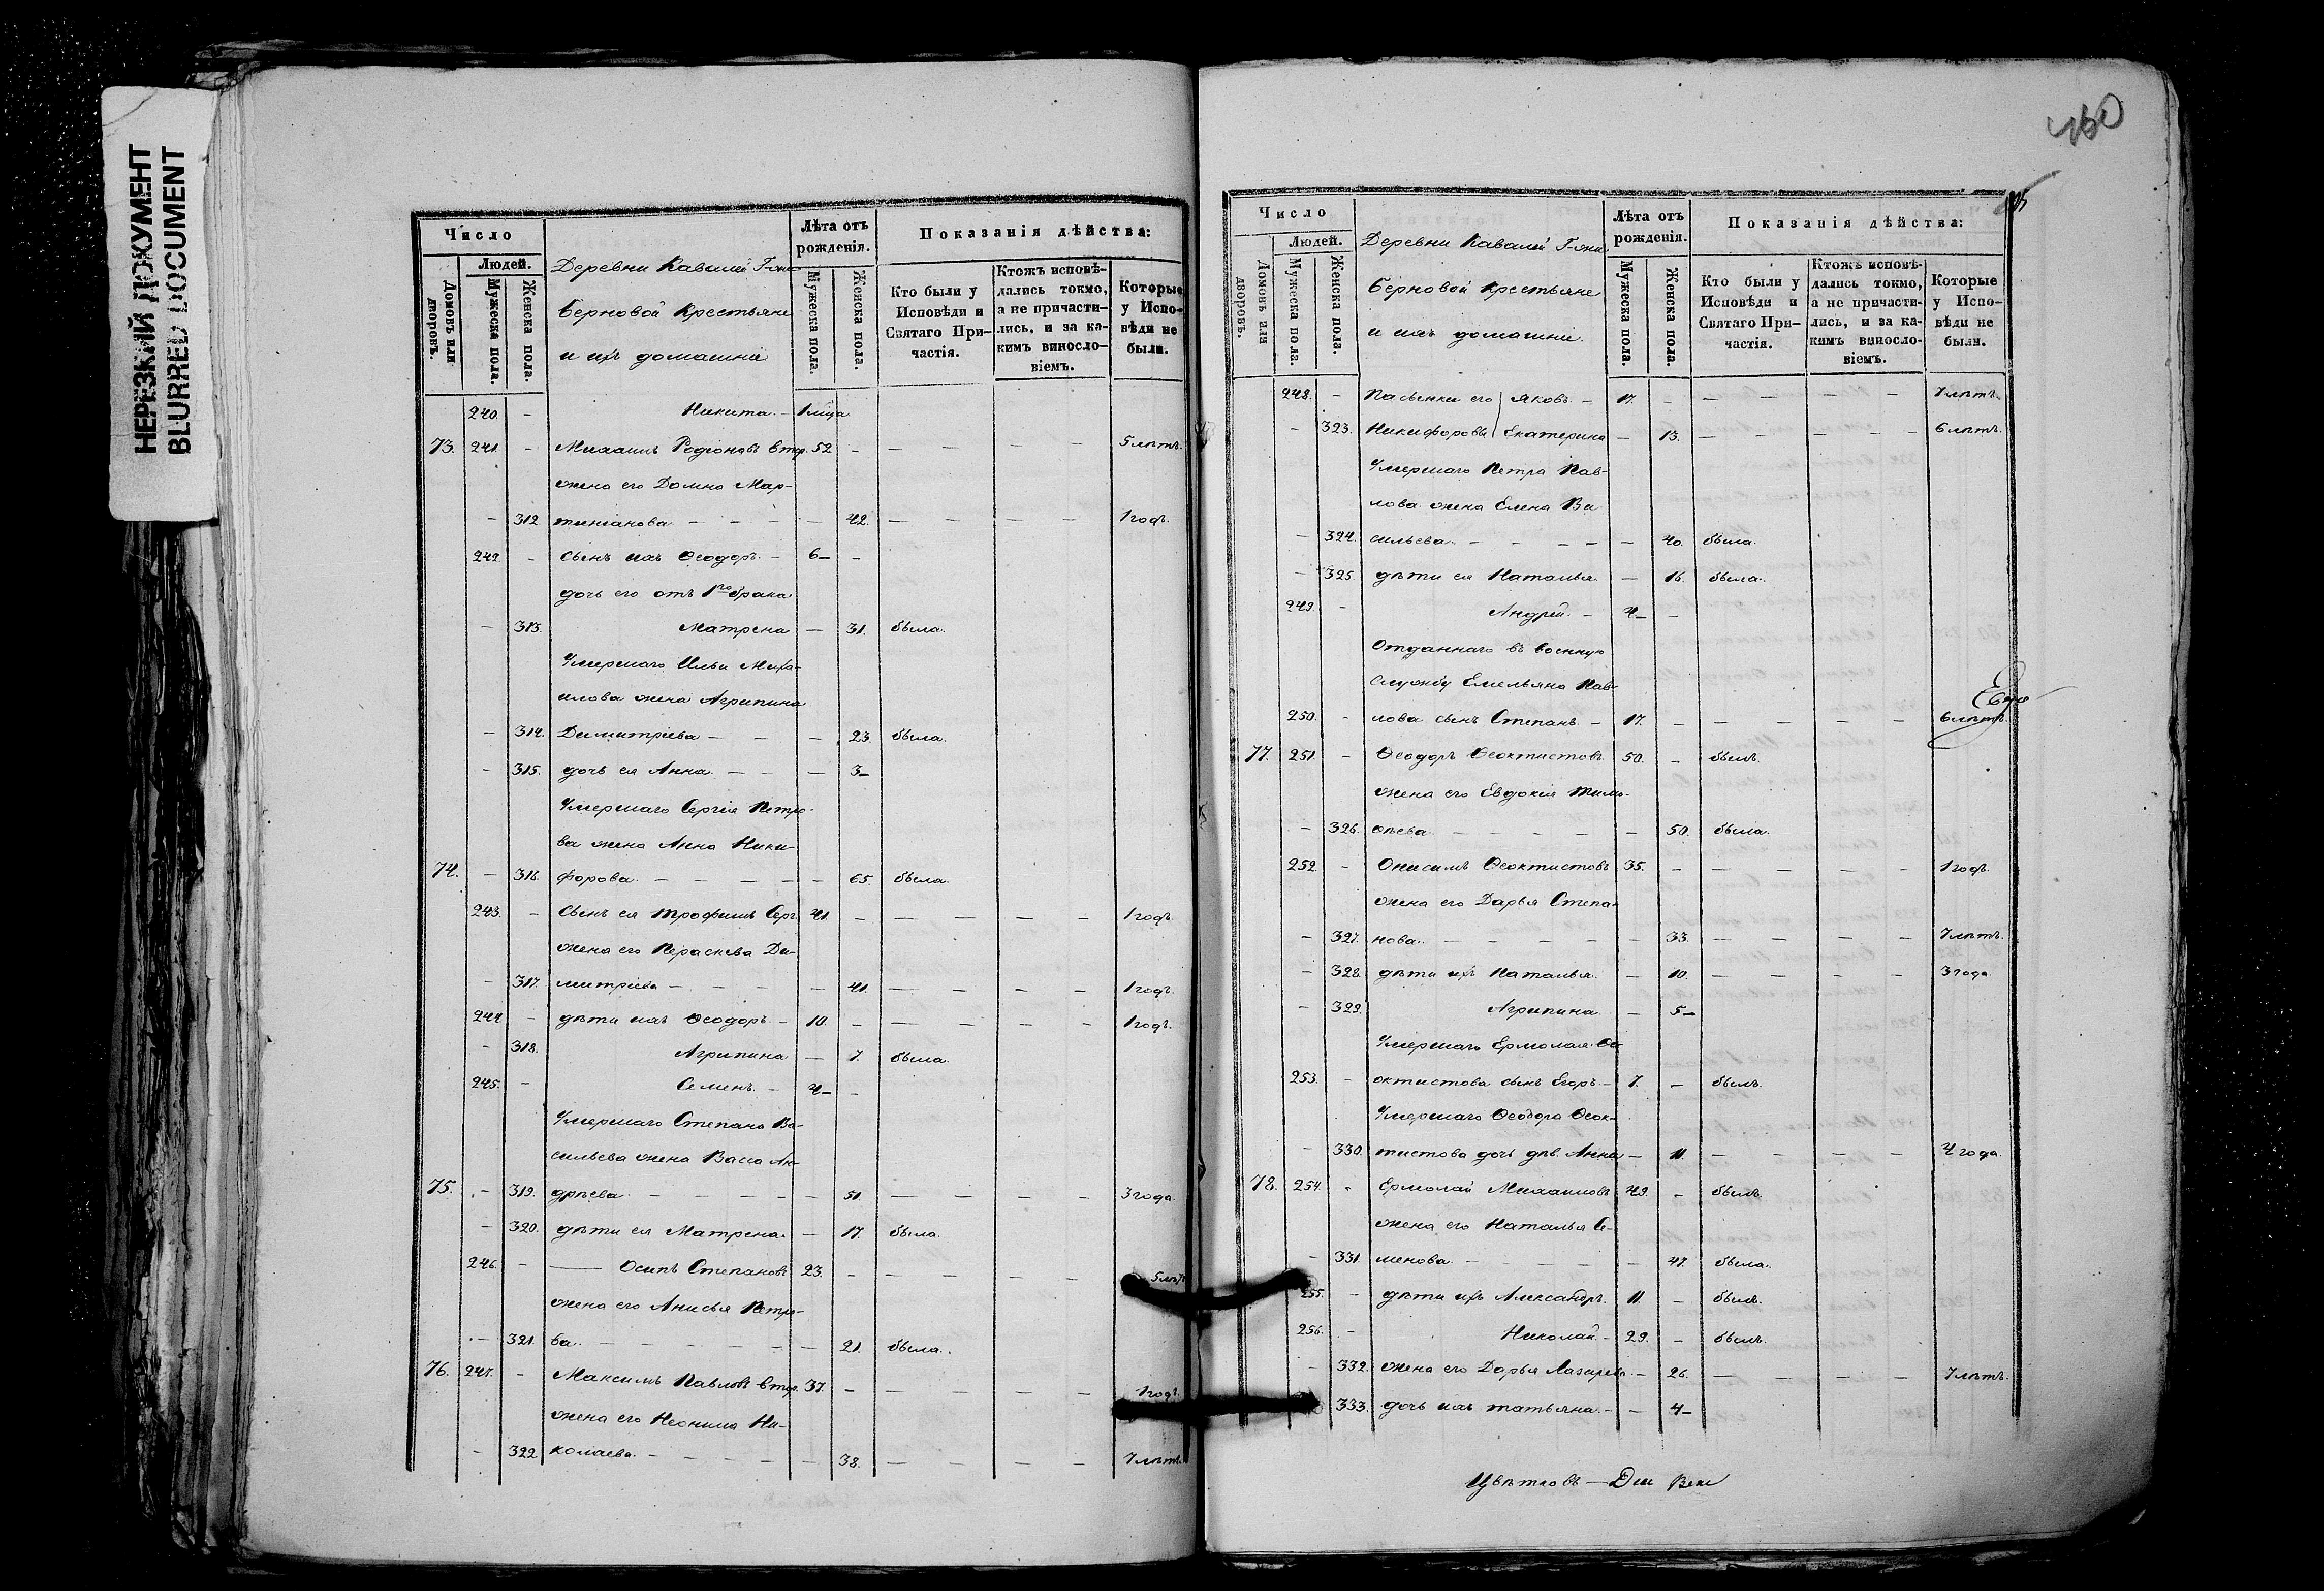 НЕРЕЗКИЙ ДОКУМЕНТ
BLURRED DOCUMENT
Число
Людей.
Домовъ или дворовъ.
Мужеска пола.
Женска пола.
Деревни Кавалей Г-жи
Берновой крестьяне
и ихъ домашніе
Лѣта отъ рожденія.
Мужеска пола.
Женска пола.
Показанія дѣйства:
Кто были у Исповѣди и Святаго При-частія.
Ктожъ исповѣ-дались токмо, а не причасти-лись, и за ка-кимъ винословіемъ.
Которые у Испо-вѣди не были.
240. - Никита - 1
73. 241. - Михаилъ Родіоновъ втор. 52 - - - - 5 лѣтъ.
жена его Домна Мар-
- 312. тиніанова - - - - 42. - - - - 1 годъ.
242. - сынъ ихъ Ѳеодоръ - 6 -
дочь его отъ 1го брака
- 313. Матрена - 31. была.
Умершаго Ильи Миха-
илова жена Агрипина
- 314. Димитріева - - - 23. была.
- 315. дочь ея Анна - - - 3 -
Умершаго Сергія Петро-
ва жена Анна Ники-
74. - 316. форова - - - - - 65. была.
243. - Сынъ ея Трофимъ Серг. 41. - - - - - 1 годъ.
жена его Параскева Ди-
- 317. митріева - - - - 41. - - - - 1 годъ.
244. - дѣти ихъ Ѳеодоръ - 10. - - - - - 1 годъ.
- 318. Агрипина - 7. была.
245. - Семенъ - 4 - -
Умершаго Степана Ва-
сильева жена Васса Ан-
75. - 319. дрѣева - - - - - 51. - - - - 3 года.
- 320. дѣти ея Матрена - 17. была.
246. - — Осипъ Степановъ 23. - - - - - 5 лѣтъ
жена его Анисья Петро-
- 321. ва - - - - - - 21. была.
76. 247. - Максимъ Павловъ втор. 37. - - - - - 1 годъ.
жена его Неонила Ни-
- 322. колаева - - - - - 38. - - - - 7 лѣтъ.
460
Число
Людей.
Домовъ или дворовъ.
Мужеска пола.
Женска пола.
Деревни Кавалей Г-жи
Берновой крестьяне
и ихъ домашніе.
Лѣта отъ рожденія.
Мужеска пола.
Женска пола.
Показанія дѣйства:
Кто были у Исповѣди и Святаго При-частія.
Ктожъ исповѣ-дались токмо, а не причасти-лись, и за ка-кимъ винословіемъ.
Которые у Испо-вѣди не были.
248. - Пасынки его Яковъ - 17. - - - - - 7 лѣтъ.
- 323. Никифоровы Екатерина - 13. - - - - 6 лѣтъ.
Умершаго Петра Пав-
лова жена Елена Ва
- 324. сильева - - - - - 40. была.
- 325. дѣти ея Наталья - 16. была.
249. - Андрей - 4 - -
Отданнаго въ военную
службу Емельяна Пав-
250. - лова сынъ Степанъ - 17. - - - - - 6 лѣтъ.
77. 251. - Ѳеодоръ Ѳеоктистовъ 50. - былъ.
жена его Евдокія Тимо-
- 326. ѳѣева - - - - - - 50. была.
252. - Онисимъ Ѳеоктистовъ 35. - - - - - 1 годъ.
жена его Дарья Степа-
- 327. нова - - - - - - 33. - - - - 7 лѣтъ.
- 328. дѣти ихъ Наталья - 10. - - - - 3 года
- 329. Агрипина - 5 -
Умершаго Ермолая Ѳе-
253. - октистова сынъ Егоръ - 7. - былъ.
Умершаго Ѳеодора Ѳеок-
- 330. тистова дочь дѣв. Анна - 11. - - - - 4 года.
78. 254. - Ермолай Михаиловъ 49. - былъ.
жена его Наталья Се-
- 331. менова - - - - - 47. была.
255. - дѣти ихъ Александръ. 11. - былъ.
256. - Николай - 29. - былъ.
- 332. жена его Дарья Лазарева - 26. - - - - 7 лѣтъ.
333. дочь ихъ татьяна - - 4 -
Цвѣтковъ —